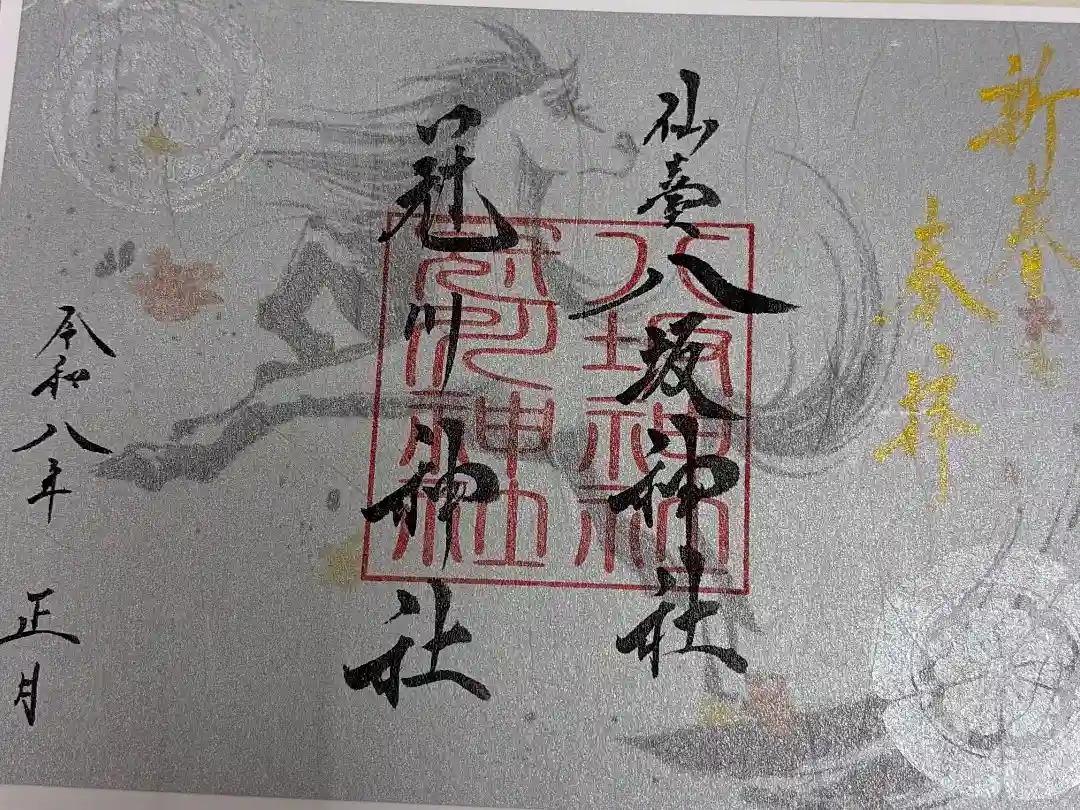 新春
奉拝
仙臺八坂神社
冠川神社
令和八年 正月
八坂神社